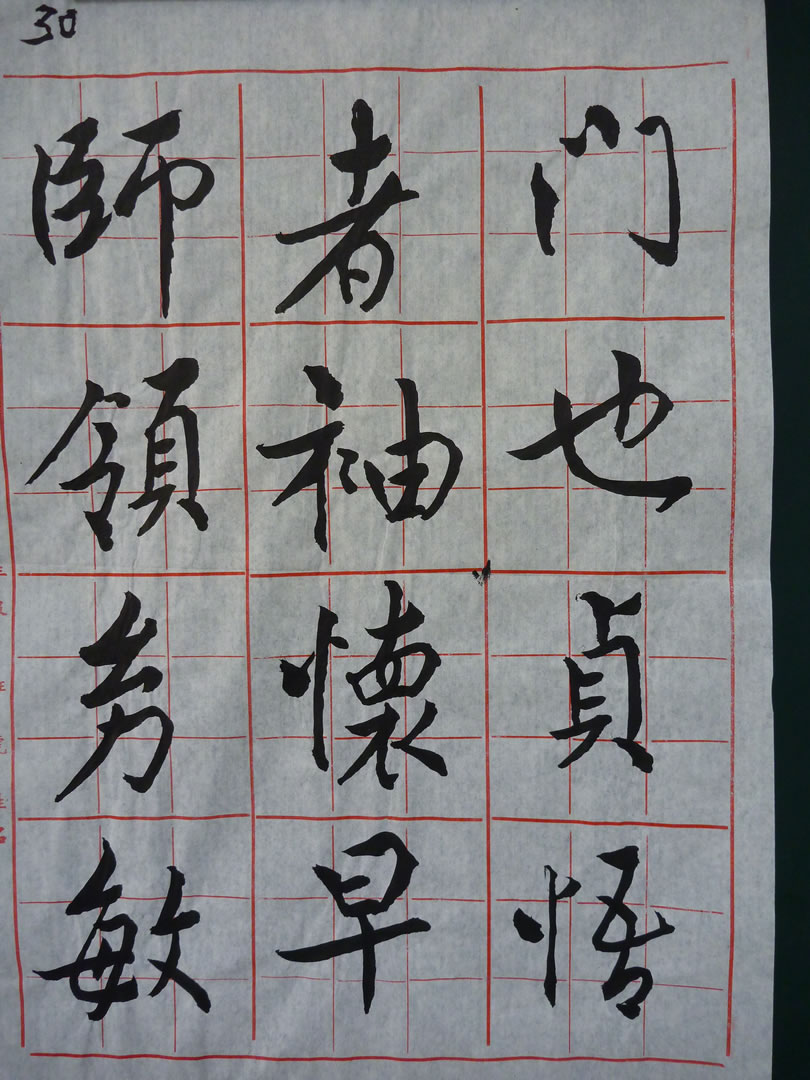 30
師者門
領袖也
幼懷貞
敏早悟